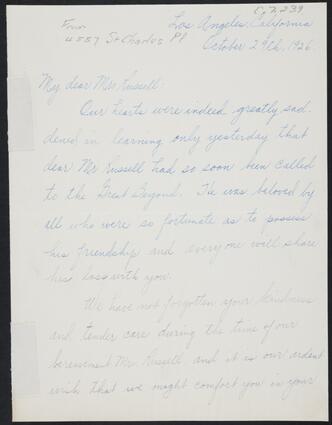 C, 2, 239
From
Los Angeles, California
4557 St Charles Pl
October 29th, 1926.
My dear Mrs. Russell:
Our hearts were indeed greatly sad-
dened in learning only yesterday that
dear Mr Russell had so soon been called
to the Great Beyond. He was beloved by
all who were so fortunate as to possess
his friendship and everyone will share
his loss with you.
We have not forgotten your kindness
and tender care during the time of our
bereavement Mrs. Russell, and it is our ardent
wish that we might comfort you in your